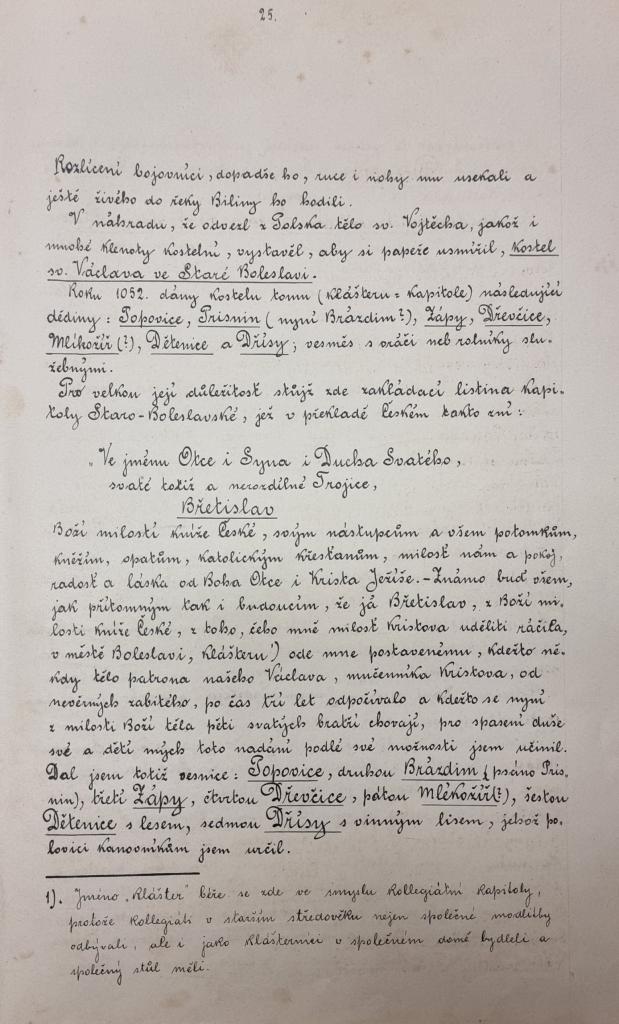 25.
Rozlícení bojovníci, dopadše ho, ruce i nohy mu usekali a
ještě živého do řeky Biliny ho hodili.
V náhradu, že odvezl z Polska tělo sv. Vojtěcha, jakož i
mnohé klenoty kostelní, vystavěl, aby si papeže usmířil, kostel
sv. Václava ve Staré Boleslavi.
Roku 1052. dány kostelu tomu (klášteru = kapitole) následující
dědiny: Popovice, Prisnin (nyní Brázdim?), Zápy, Dřevčice,
Mlíkožír(?), Dětenice a Dřísy; vesměs s oráči neb rolníky slu-
žebnými.
Pro velkou její důležitost stůjž zde zakládací listina kapi-
toly Staro-Boleslavské, jež v překladě českém takto zní:
„Ve jménu Otce i Syna i Ducha Svatého,
svaté totiž a nerozdílné Trojice,
Břetislav
Boží milostí kníže České, svým nástupcům a všem potomkům,
kněžím, opatům, katolickým křesťanům, milosť nám a pokoj,
radosť a láska od Boha Otce i Krista Ježíše. - Známo buď všem,
jak přítomným tak i budoucím, že já Břetislav, z Boží mi-
losti kníže České, z toho, čeho mně milosť Kristova uděliti ráčila,
v městě Boleslavi, klášteru¹) ode mne postavenému, kdežto ně-
kdy tělo patrona našeho Václava, mučenníka Kristova, od
nevěrných zabitého, po čas tří let odpočívalo a kdežto se nyní
z milosti Boží těla pěti svatých bratří chovají, pro spasení duše
své a dětí mých toto nadání podlé své možnosti jsem učinil.
Dal jsem totiž vesnice: Popovice, druhou Brázdim (psáno Pris-
nin), třetí Zápy, čtvrtou Dřevčice, pátou Mlékožíř(?), šestou
Dětenice s lesem, sedmou Dřísy s vinným lisem, jehož po-
lovici kanovníkům jsem určil.
1). Jméno „klášter" béře se zde ve smyslu kollegiátní kapitoly,
protože kollegiáti v starším středověku nejen společné modlitby
odbývali, ale i jako klášterníci v společném domě bydleli a
společný stůl měli.